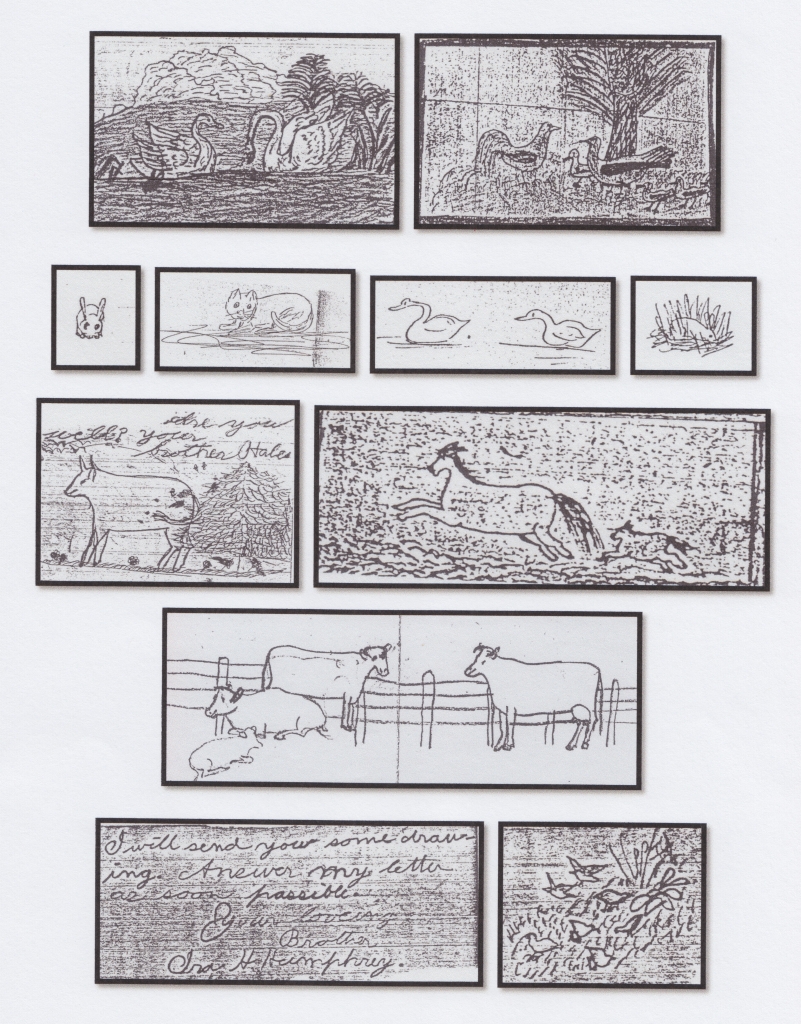 Are you
well? your
brother Hale
I will send you some draw-
ing. Answer my letter
as soon passible.
Your loveing
Brother
Ira H. Humphrey.